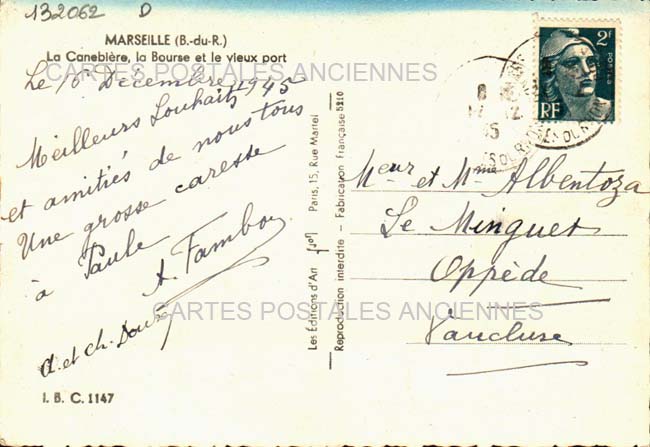 132062 D
MARSEILLE (B.-du-R.)
La Canebière, la Bourse et le vieux port
CARTES POSTALES ANCIENNES
Le 10 Décembre 1945
Meilleurs Souhaits
et amitiés de nous tous
Une grosse caresse
à Paule
A. Fambon
A. et Ch.
I. B. C. 1147
Les Éditions d'Art Paris, 15, Rue Martel
Reproduction interdite - Fabrication Française 5210
2F
POSTES
RF
8
12
Meur et Mme Albentoza
Le Minguet
Oppède
Vaucluse
CARTES POSTALES ANCIENNES